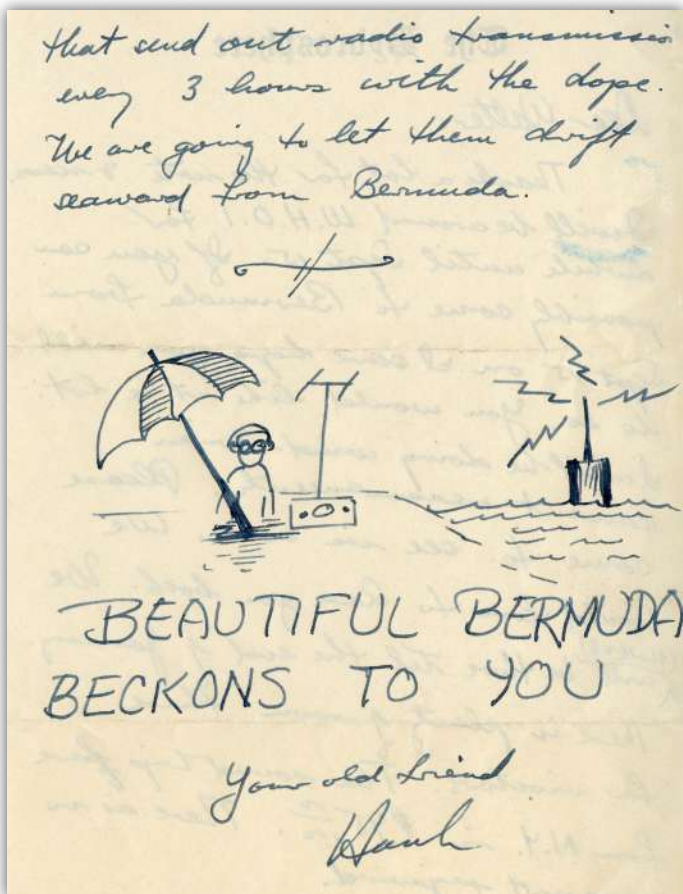 that send out radio transmissio
every 3 hours with the dope.
We are going to let them drift
seaward from Bermuda.
BEAUTIFUL BERMUDA
BECKONS TO YOU
Your old friend
Hank